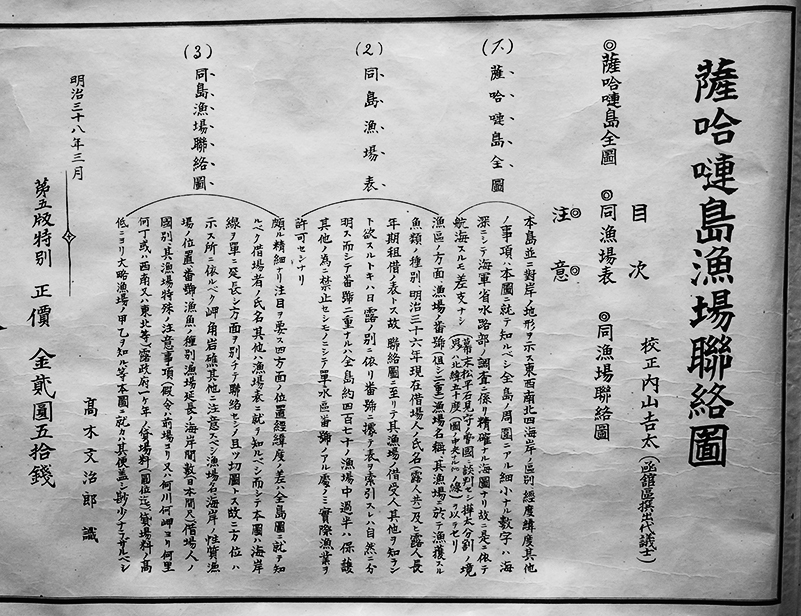 薩哈嗹島漁場聯絡圖
校正內山吉太(函館區撰出代議士)
目次
◎薩哈嗹島全圖 ◎同漁場表 ◎同漁場聯絡圖
注意
(1)薩哈嗹島全圖
本島並ニ對岸ノ地形ヲ示ス東西南北四海岸ノ區別經度緯度其他
ノ事項ハ本圖ニ就テ知ルベシ全島ノ周圍ニアル細小ナル數字ハ海
深ニシテ海軍省水路部ノ調査ニ係リ精確ナル海圖ナリ故ニ是ニ依テ
航海スルモ差支ナシ
(2)同島漁場表
漁區ノ方面漁場ノ番號(但シ二重)漁場名稱其漁場ニ於テ漁獲スル
魚類ノ種別明治三十六年現在借場人ノ氏名(露人共)及ヒ露人長
年期租借ノ表トス故聯絡圖ニ至リテ其漁場ノ借受人其他ヲ知ラン
ト欲スルトキハ日露ノ別ニ依リ番號ニ據テ表ヲ索引スレハ自然ニ分
明ス而シテ番號二重ナルハ全島約四百七十ノ漁場中過半ハ保護
其他ノ為ニ禁止セシモノニシテ單水區番號ノアル處ノミ實際漁業ヲ
許可セシナリ
(3)同島漁場聯絡圖
頗ル精細ナリ注目ヲ要ス四方面ノ位置經緯度ノ差ハ全島圖ニ就テ知
ルベク借場者ノ氏名其他ハ漁場表ニ就テ知ルベシ而シテ本圖ハ海岸
線ヲ單ニ延長シ方面ヲ別チテ聯絡セシメ且ツ切圖トス故ニ方位ハ
示ス所ニ依ルベク岬角岩礁其他ニ注意スベシ漁場名海岸ノ性質漁
場ノ位置番號漁魚ノ種別漁場延長ノ海岸間數(日本間尺)借場人ノ
國別其漁場特殊ノ注意事項(假令ハ前場ヨリ又ハ何川何岬ヨリ何里
何丁或ハ西南又ハ東北等)露政府一ケ年ノ貸場料(圓位迄)貸場料ノ高
低ニヨリ大略漁場ノ甲乙ヲ知ル等本圖ニ就カハ其裨益シ尠少ナラザルベシ
明治三十八年三月
高木文治郎識
第五版特別 正價 金貳圓五拾錢